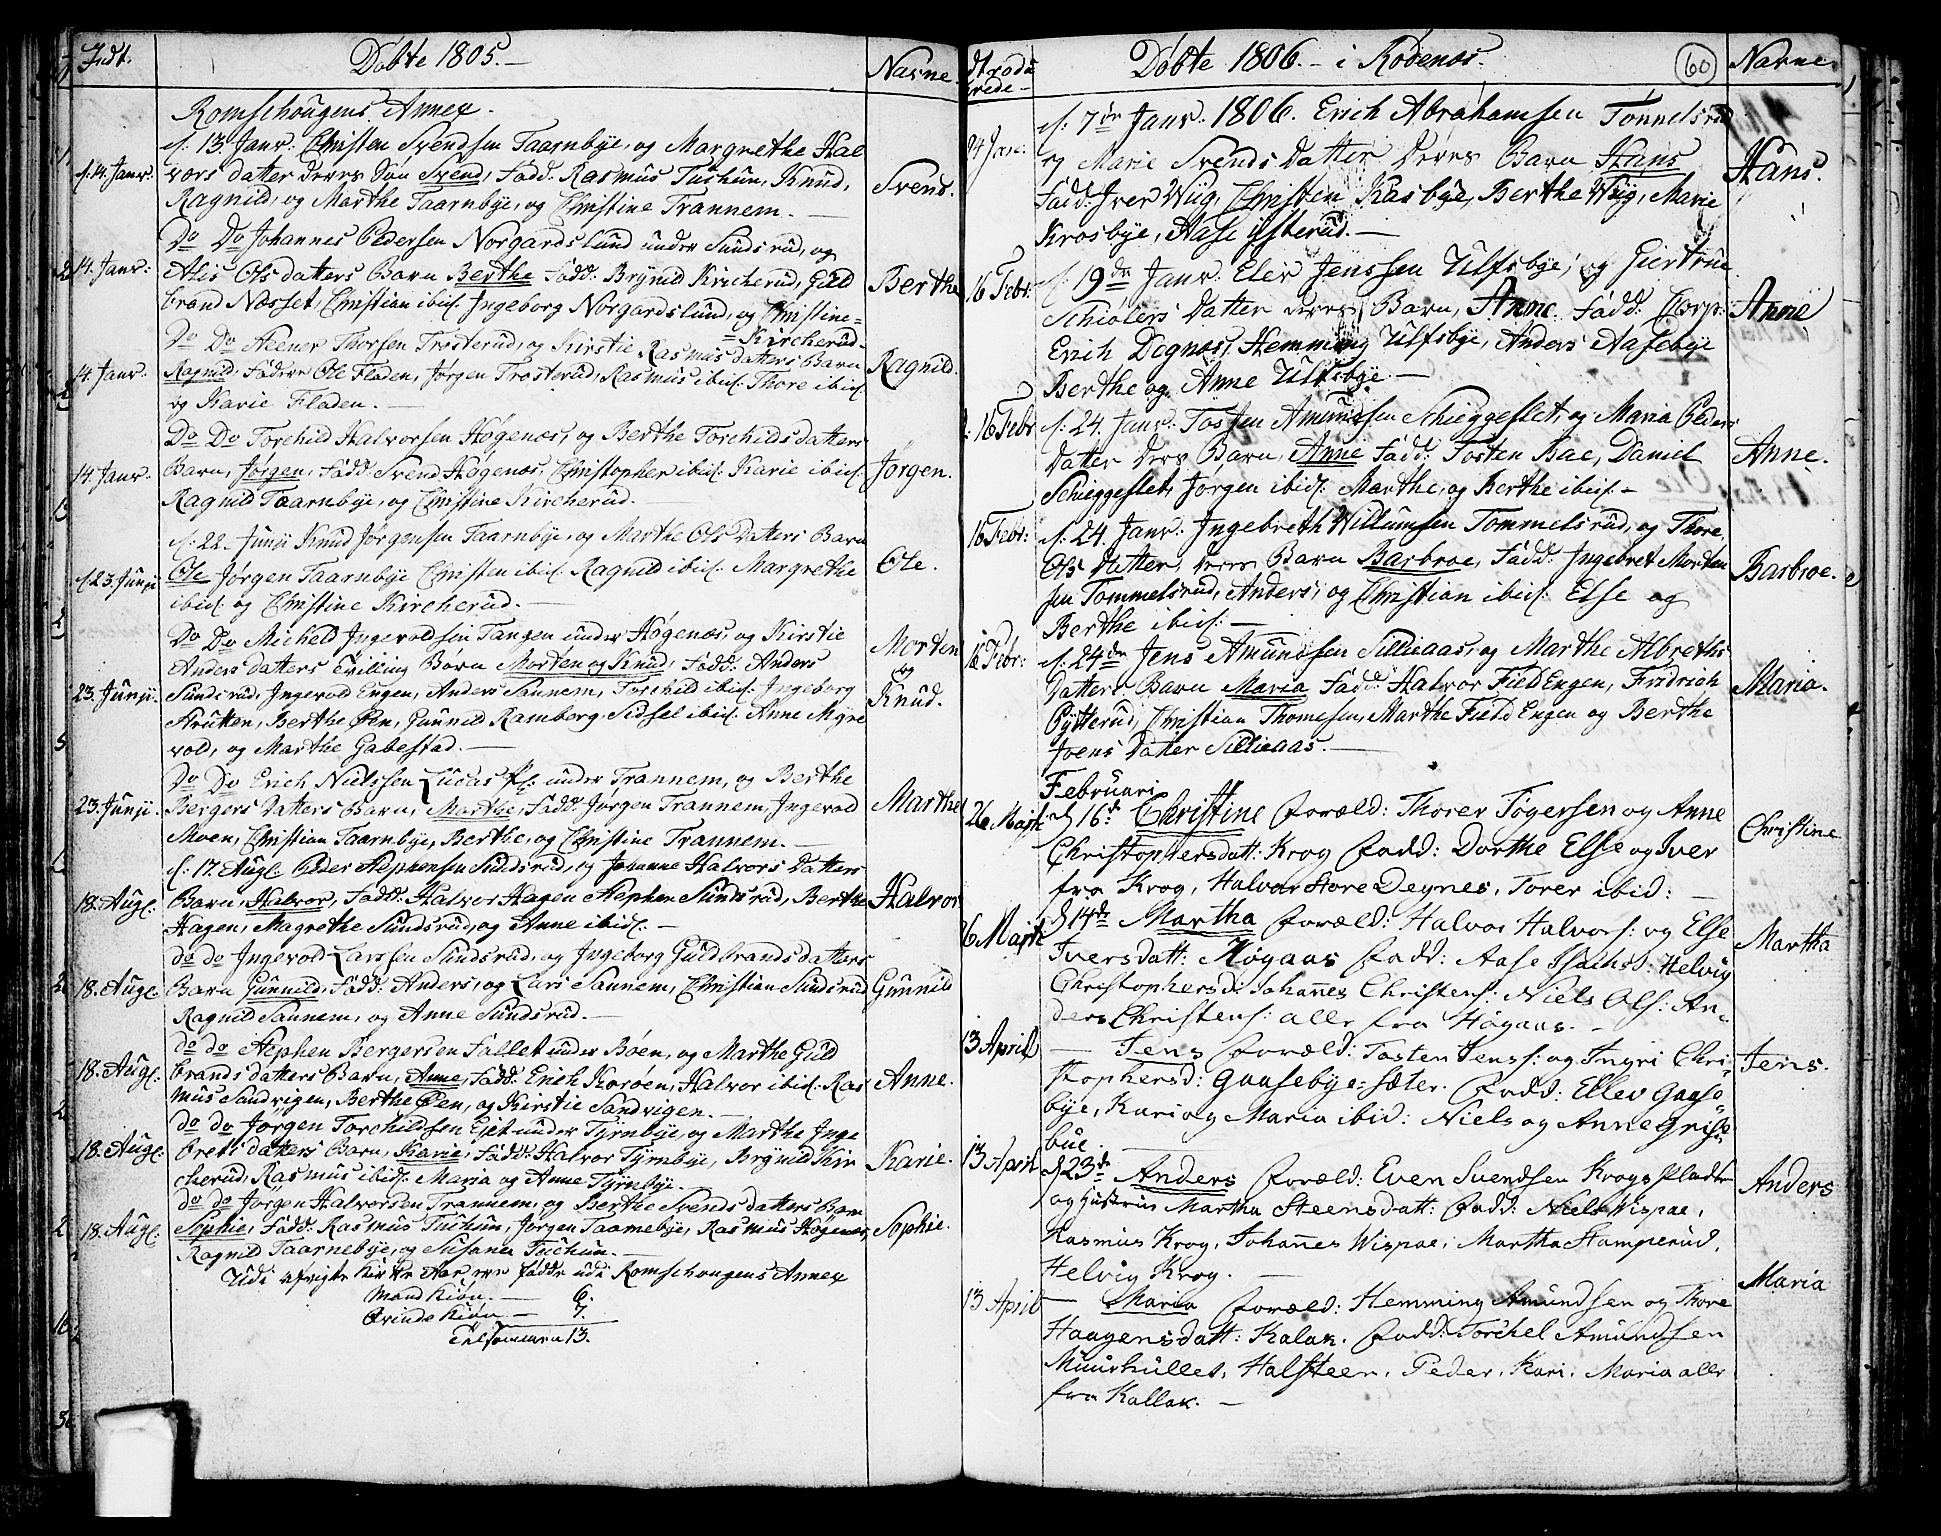 Indt.
Døbte 1805.—
Navne.
Romschougens Annex.
d. 13. Janr. Christen Svendsen Taarnbye, og Margrethe Hal
d. 14. Janr.
vors datter deres Søn Svend, Fadd: Rasmus Tuchun, Knud,
Svend.
Ragnild, og Marthe Taarnbye, og Christine Trannem.—
Do Do Johannes Pedersen Norgardslund under Sundsrud, og
14. Janr:
Alis Ols datters Barn Berthe Fadd: Brynild Kircherud, Guld
Berthe
brand Næsset, Christian ibid. Ingeborg Norgardslund, og Christine=
=Kircherud.
Do Do Steener Thorsen Trosterud, og Kirstie Rasmus datters Barn
14. Janr.
Ragnild. Faddere Ole Fladen, Jørgen Trosterud, Rasmus ibid. Thore ibid.
Ragnild.
og Karie Fladen.—
Do Do Torchild Halvorsen Høgenæs, og Berthe Torchilds datters
14. Janr.
Barn, Jørgen, Fadd: Svend Høgenæs, Christopher ibid. Karie ibid.
Jørgen.
Ragnild Taarnbye, og Christine Kircherud.
d. 22. Junji Knud Jørgensen Taarnbye, og Marthe Ols Datters Barn
d. 23. Junji
Ole Jørgen Taarnbye Christen ibid. Ragnild ibid. Margrethe
Ole.
ibid. og Christine Kircherud.—
Do Do Micheld Ingevoldsen Tangen under Høgenæs, og Kirstie
Morten
Anders datters Tvilling Børn Morten og Knud, Fadd: Anders
og
23. Junji.
Sundsrud, Ingevod Engen, Anders Sannem, Torchild ibid. Ingeborg
Knud.
Strukken, Berthe Øen, Gunnild Ramberg, Sidsel ibid. Anne Myre
vold, og Marthe Gabestad.—
Do Do Erich Nielssen Lucas Pl. under Trannem, og Berthe
23. Junji.
Bergers Datters Barn, Marthe, Fadd: Jørgen Trannem, Ingevod
Marthe
Moen, Christian Taarnbye, Berthe, og Christine Trannem.—
d. 17. Augl. Peder Stephensen Sundsrud, og Johanne Halvors Datters
18. Augl.
Barn, Halvor, Fadd: Halvor Hagen Stephen Sundsrud, Berthe
Halvor
Hagen, Magrethe Sundsrud, og Anne ibid.—
do do Ingevod Larssen Sundsrud, og Ingeborg Guldbrands datters
18. Augl.
Barn Gunnild, Fadd: Anders, og Lars Sannem, Christian Sundsrud
Gunnild
Ragnild Sannem, og Anne Sundsrud.—
do do Stephen Bergersen Fallet under Bøen, og Marthe Guld
18. Augl.
brands datters Barn, Anne, Fadd: Erich Korøen, Halvor ibid. Ras
Anne.
mus Sandvigen, Berthe Øen, og Kirstie Sandvigen.—
do do Jørgen Torchildsen Ejet under Tyrnbye, og Marthe Inge
18. Augl.
brets datters Barn, Karie, Fadd: Halvor Tyrnbye, Brynild Kir
Karie.
cherud, Rasmus ibid. Maria og Anne Tyrnbye.
do do Jørgen Halvorsen Trannem, og Berthe Svends datters Barn
18. Augl.
Sophie, Fadd: Rasmus Tuchun, Jørgen Taarnebye, Rasmus Høgenæs,
Sophie.
Ragnild Taarnebye, og Susanne Tuchun.—
Udi afvigte Kirke Aar ere fødde udi Romschougens Annex
Mand Kiøn.— 6.
Qvinde Kiøn— 7.
Tilsammen 13.
Introdu
cerede—
Døbte 1806.— i Rødenæs.
60
Navne.
d. 7de Janr. 1806. Erich Abrahamsen Tonnelsrud
24 Jan:
og Marie Svends Datter deres Barn Hans
Hans.
Fadd: Iver Wiig, Christen Kasbye, Berthe Wiig, Marie
Krosbye, Aase Isterud.—
d. 19de Janr. Eler Jenssen Ulfsbye, og Giertrue
16 Febr:
Schiølers Datter deres Barn, Anne. Fadd: Corp:
Anne
Erich Degnæs, Hemming Ulfsbye, Anders Aasebye
Berthe og Anne Ulfsbye.—
16 Febr
d. 24. Janr. Tosten Amundsen Schieggeslet, og Maria Peders
Datter Ders Barn, Anne Fadd: Tosten Bae, Daniel
Anne.
Schieggeslet, Jørgen ibid. Marthe, og Berthe ibid.—
16 Febr:
d. 24. Janr: Ingebreth Willumsen Tommelsrud, og Thore
Ols Datter, deres Barn Barbroe, Fadd: Ingebret Morten
Barbroe.
sen Tommelsrud, Anders, og Christian ibid: Else og
Berthe ibid:—
16 Febr:
d. 24de Jens Amundsen Sillieaas, og Marthe Albreths
Datters Barn Maria Fadd: Halvor Field Engen, Fridrich
Maria.
Pytterud, Christian Thomesen, Marthe Field Engen og Berthe
Joens Datter Sillieaas.—
Februari
26 Majti
d 16de Christine Foræld: Thorer Togersen og Anne
Christine
Christophersdatt: Krog Fadd: Dorthe Else og Iver
fra Krog, Halvor Store Deynes, Torer ibid:—
26 Majti
d 14de Martha Foræld: Halvor Halvors: og Else
Martha
Iversdatt: Høgaas Fadd: Aase Isachsd: Helvig
Christophersd: Johannes Christens: Niels Ols: An=
ders Christens: alle fra Høgaas.—
13 April
— Jens Foræld: Tosten Jenss: og Ingri Chri=
Jens.
stophersd: Gaasebye=sæter. Fadd: Ellev Gaase
bye, Kari og Maria ibid: Niels og Anne Griss=
bue.
13 April
d 23de Anders Foræld: Even Svendsen Krogs Pladsen
Anders
og Hustrue Martha Steensdatt: Fadd: Niels Wispae,
Rasmus Krog, Johannes Wispae, Martha Stomperud,
Helvig Krog.—
Maria
13 April
— Maria Foræld: Hemming Amundsen og Thore
Haagensdatt: Kalak. Fadd: Torchel Amundsen
Muurhullet, Halsteen, Peder, Kari, Maria alle
fra Kallak.—